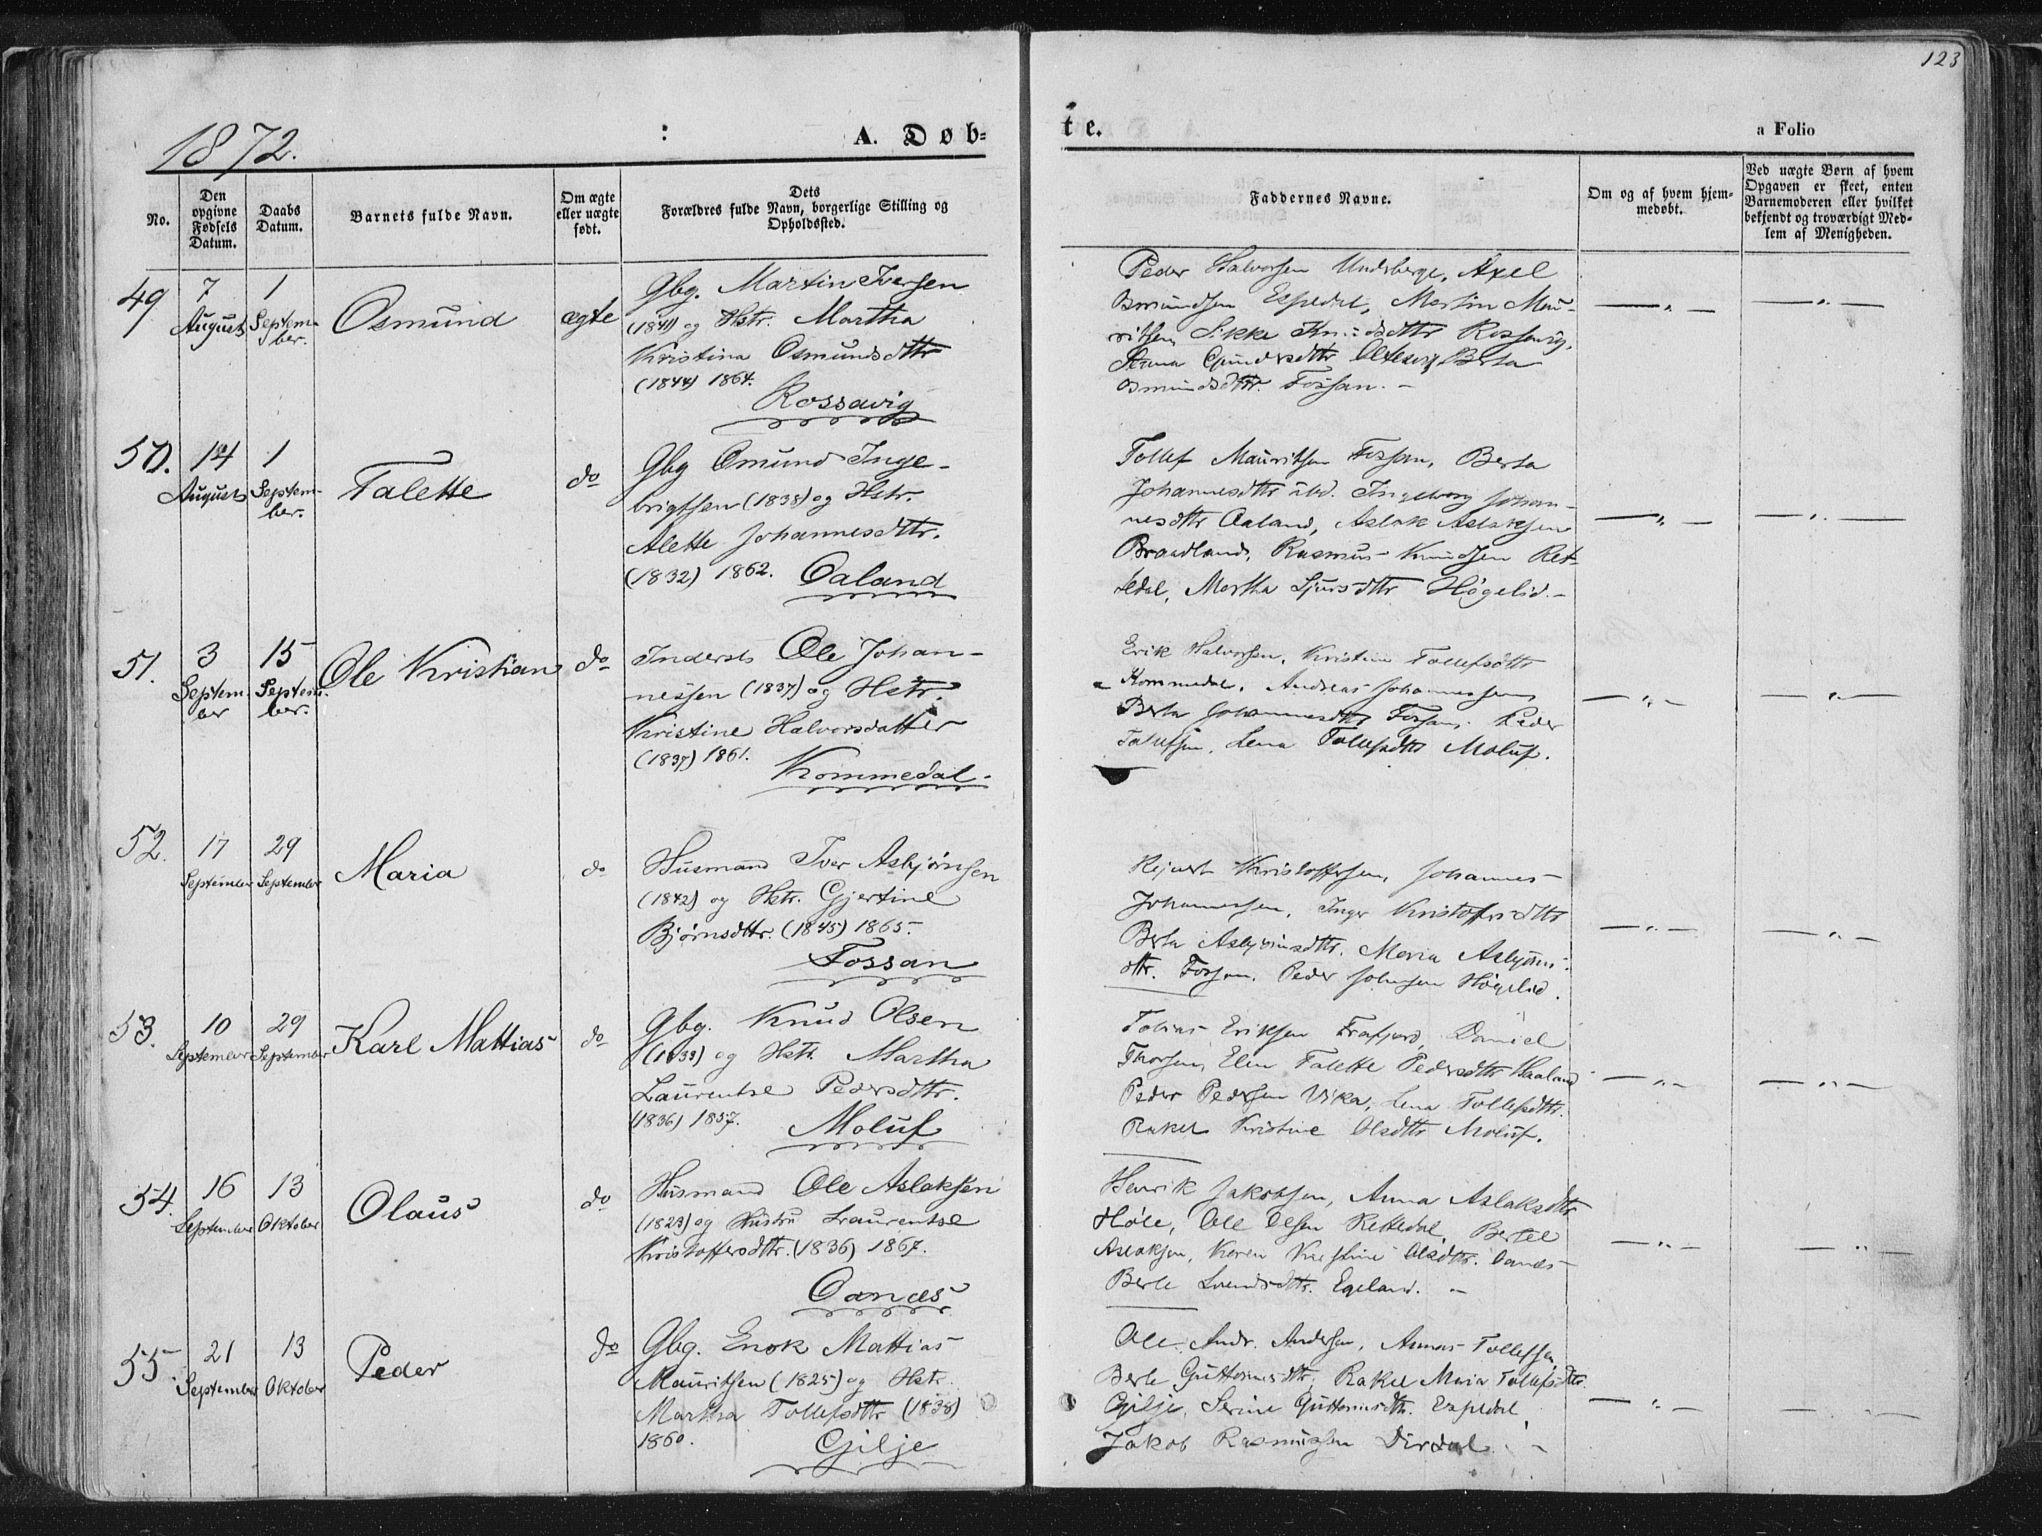 123
1872.
:
A. Døb-
te.
a Folio
No.
Den opgivne Fødsels Datum.
Daabs Datum.
Barnets fulde Navn.
Om ægte eller uægte født.
Dets Forældres fulde Navn, borgerlige Stilling og Opholdssted.
Faddernes Navne.
Om og af hvem hjemmedøbt.
Ved uægte Børn af hvem Opgaven er skeet, enten Barnemoderen eller hvilket bekjendt og troværdigt Medlem af Menigheden.
49 7 August 1 September. Osmund ægte
Gbg. Martin Iversen
(1841) og Hstr. Martha
Kristina Osmundsdttr
(1844) 1864.
Rossavig
Peder Halvorsen Undsberge, Axel
Osmundsen Espedal, Martin Mau-
ritsen, Sikke Knudsdttr Rossavig,
Anna Gundersdttr Oltesvig Berta
Osmundsdttr. Fossan. -
— " — — " —
50. 14 August 1 September. Talette do
Gbg Omund Inge-
brigtsen (1838) og Hstr.
Alette Johannesdttr.
(1832) 1862. Oaland
Tollef Mauritsen Fossan, Berta
Johannesdttr ibd. Ingeborg Johan-
nesdttr Oaland, Aslak Aslaksen
Braadland, Rasmus Knudsen Ret-
tedal, Martha Sjursdttr Høgelid. -
— " — — " —
51. 3 September 15 September. Ole Kristian do
Inderst Ole Johan-
nessen (1837) og Hstr.
Kristine Halvorsdatter
(1837) 1861.
Kommedal.
Erik Halvorsen, Kristine Tollefsdttr
Kommedal, Andreas Johannessen,
Berta Johannesdttr Fossan, Peder
Tollefsen, Lena Tollefsdttr Moluf.
— " — — " —
52. 17 September 29 September Maria do
Husmand Iver Asbjørnsen
(1842) og Hstr. Gjertine
Bjørnsdttr. (1845) 1865.
Fossan
Kristoffersen, Johannes
Johannessen, Inger Kristoffersdttr
Berta Asbjørnsdttr. Maria Asbjørns-
dttr. Fossan, Peder Johnsen Høgelid.
— " — — " —
53. 10 September 29 September Karl Mattias do
Gbg. Knud Olsen
(1833) og Hstr. Martha
Laurentse Pedersdttr.
(1836) 1857. Moluf
Tobias Eriksen Frafjord, Daniel
Thorsen, Elen Talette Pedersdttr Haaland
Peder Pedersen Vika, Lena Tollefsdttr.
Rakel Kristine Olsdttr Moluf.
— " — — " —
54. 16 September 13 Oktober Olaus do
Husmand Ole Aslaksen
(1823) og Hustru Laurentse
Kristoffersdttr. (1836) 1867.
Oanæs
Henrik Jakobsen, Anna Aslaksdttr
Høle, Ole Olsen Rettedal, Bertel
Aslaksen, Karen Kristine Olsdttr. Oanæs
Berte Svendsdttr. Egeland. -
— " — — " —
55. 21 September 13 Oktober Peder do
Gbg. Enok Mattias
Mauritsen (1825) og Hstr.
Martha Tollefsdttr (1838)
1860. Gilje
Ole Andr. Andersen, Asmus Tollefsen
Berte Guttormsdttr, Rakel Maria Tollefsdttr.
Gilje, Serine Guttormsdttr. Espedal
Jakob Rasmussen Dirdal. -
— " — — " —